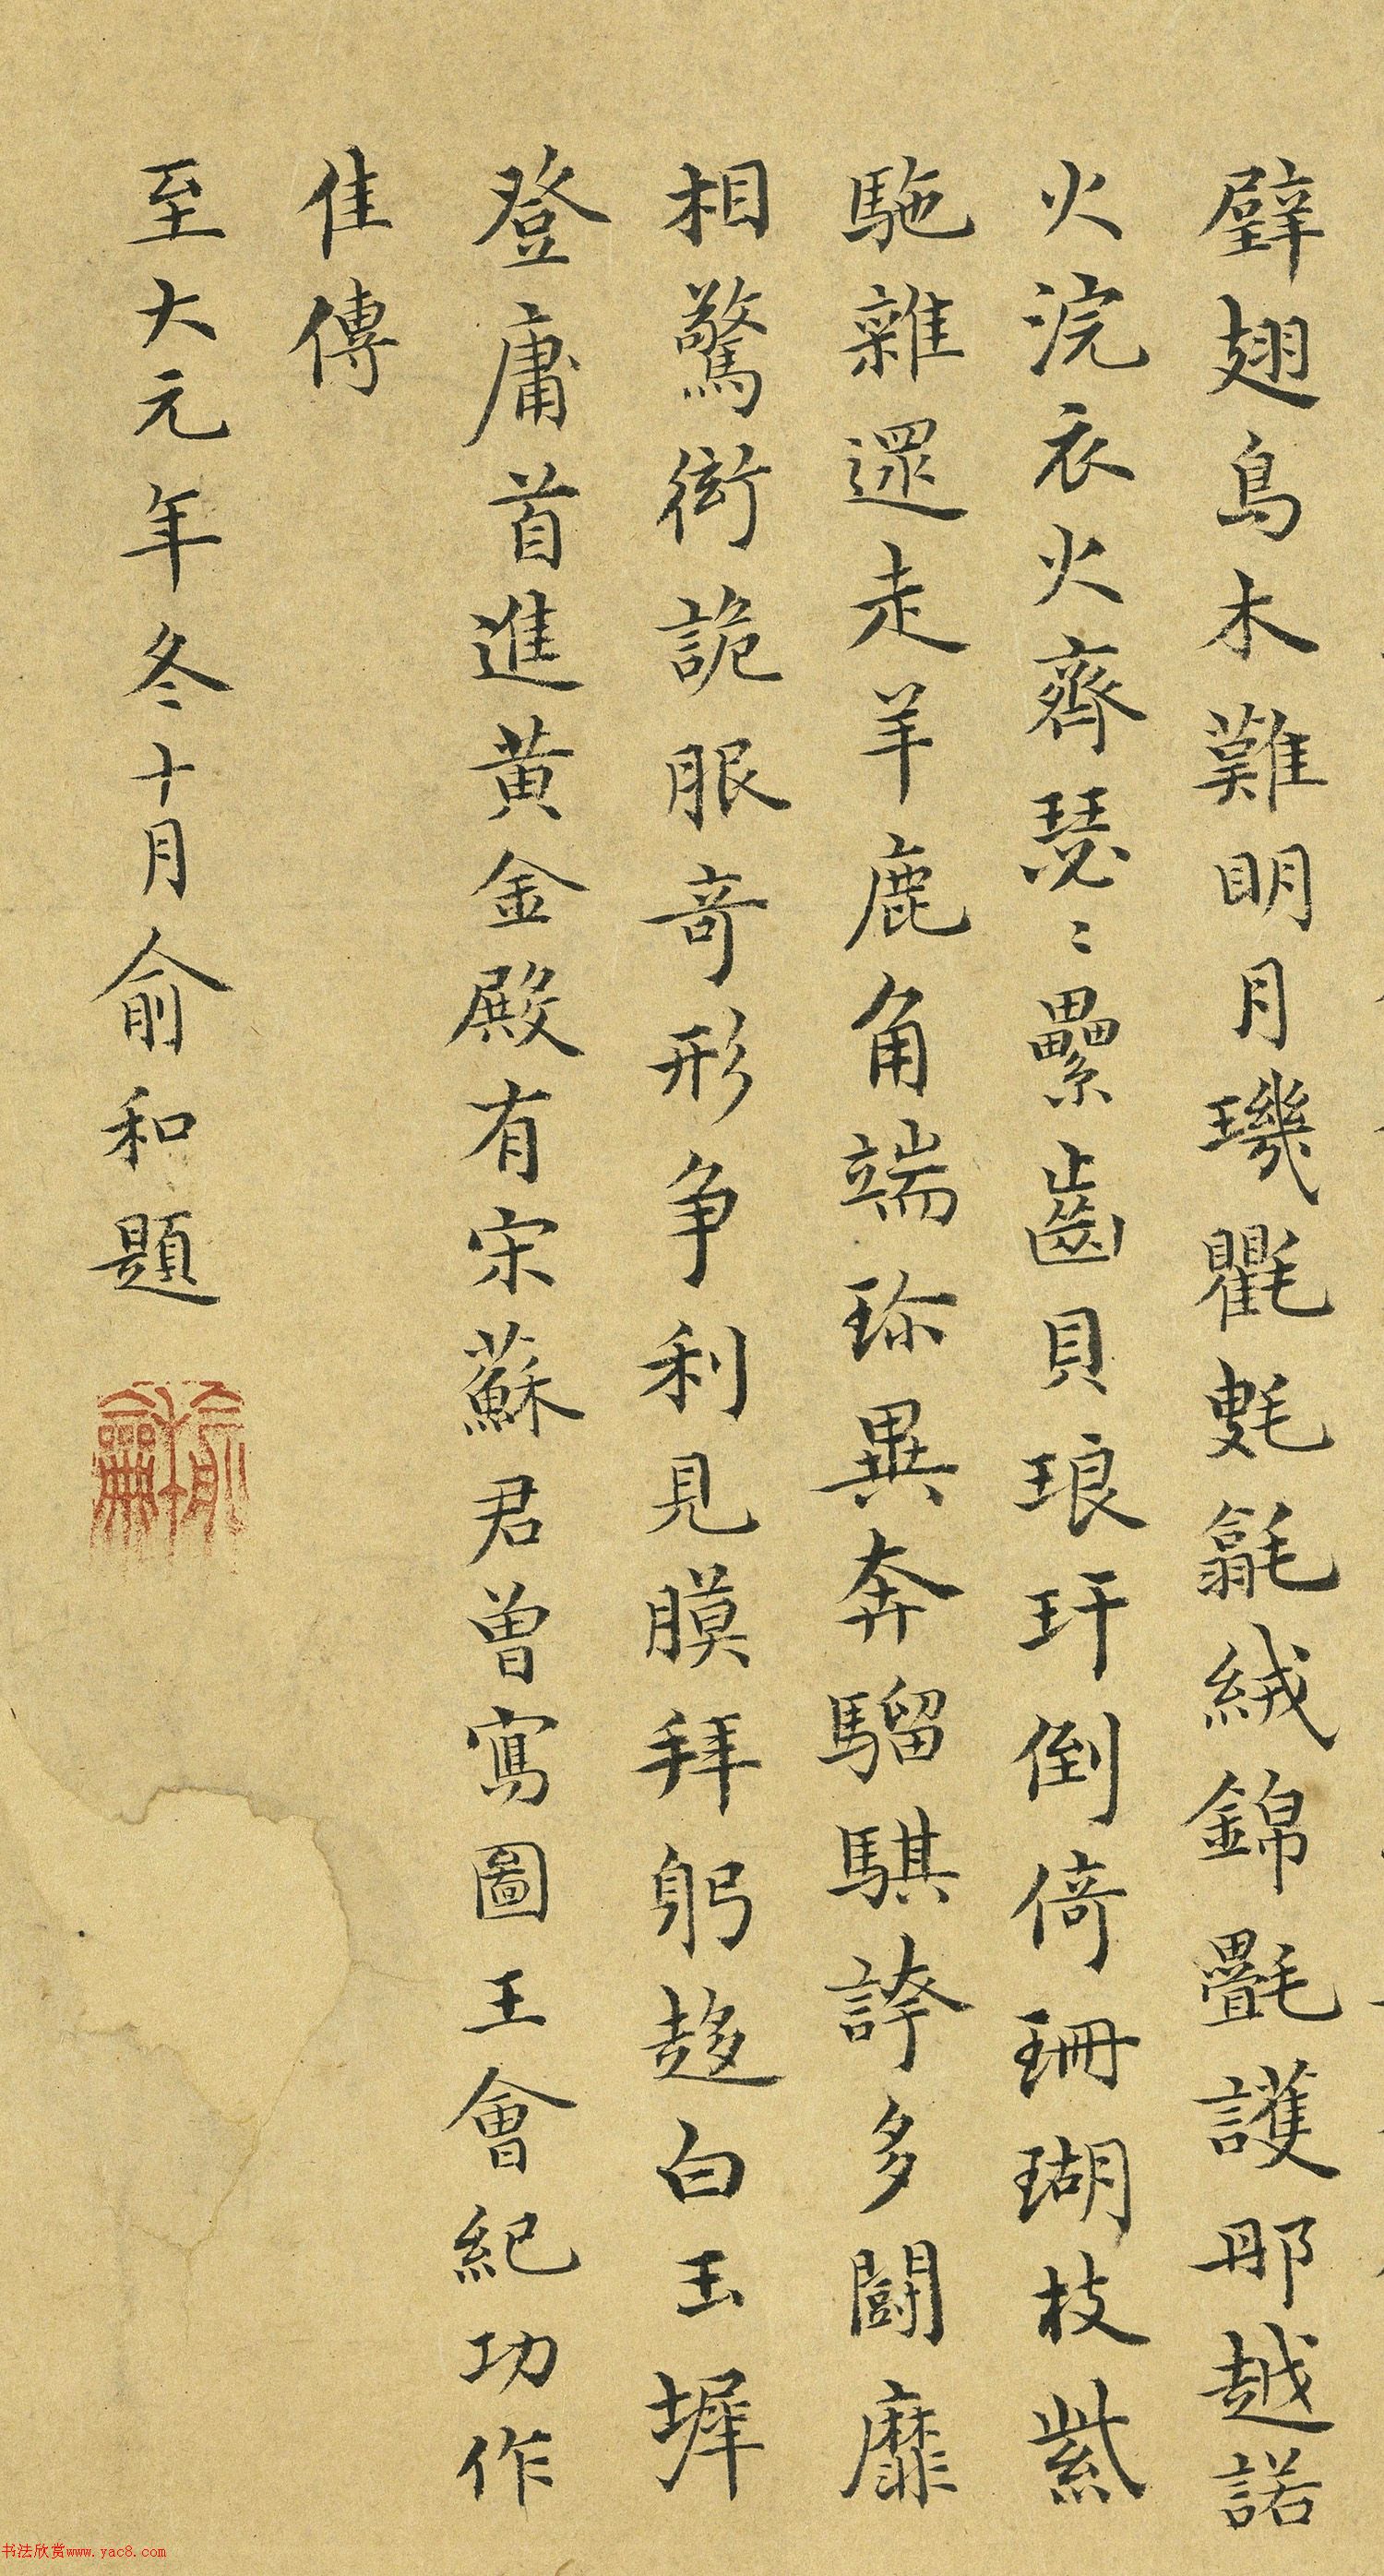 璧翅鳥木難明月璣氍㲣毹絨錦氎護那越諾
火浣衣火齊瑟〻纍齒貝琅玕倒倚珊瑚枝紫
駞雜遝走羊鹿角端珎異奔騮騏誇多鬪靡
相驚衒詭服奇形争利見膜拜躬趍白玉墀
登庸首進黄金殿有宋蘇君曾寫圖王會紀功作
佳傳
至大元年冬十月俞和題
书法欣赏www.yac8.com